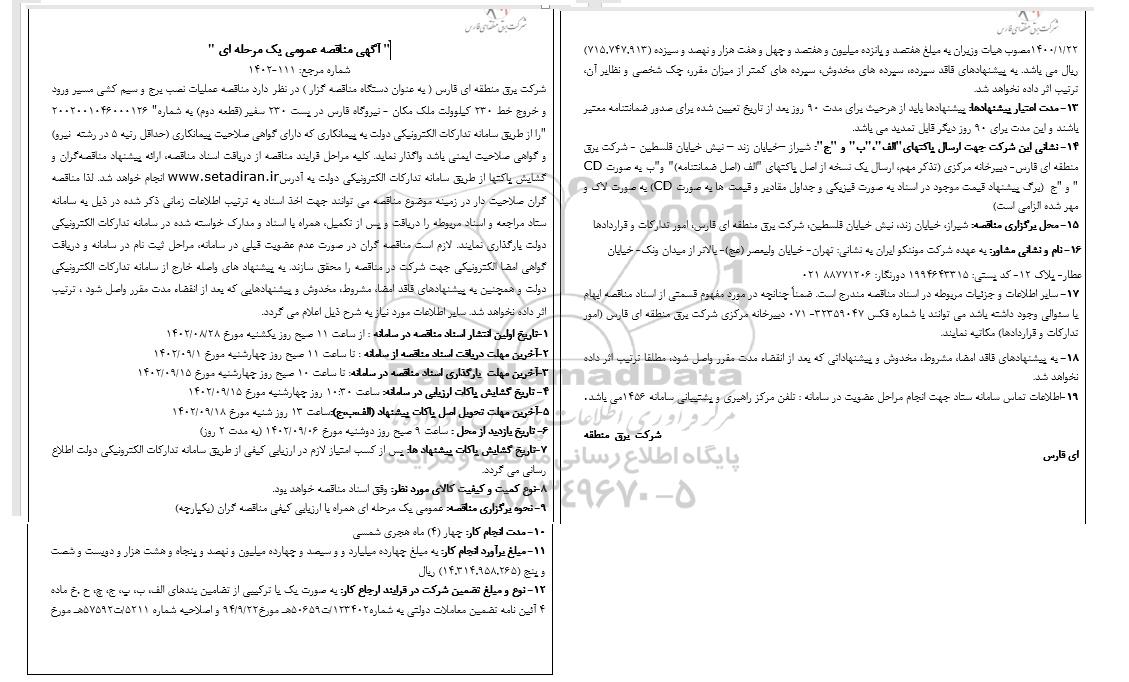 شرکت برق منطقه‌ای فارس
" آگهی مناقصه عمومی یک مرحله ای "
شماره مرجع: ۱۱۱-۱۴۰۲
شرکت برق منطقه ای فارس ( به عنوان دستگاه مناقصه گزار ) در نظر دارد مناقصه عملیات نصب برج و سیم کشی مسیر ورود
و خروج خط ۲۳۰ کیلوولت ملک مکان - نیروگاه فارس در پست ۲۳۰ سفیر (قطعه دوم) به شماره" ۲۰۰۲۰۰۱۰۴۶۰۰۰۱۲۶
"را از طریق سامانه تدارکات الکترونیکی دولت به پیمانکاری که دارای گواهی صلاحیت پیمانکاری (حداقل رتبه ۵ در رشته نیرو)
و گواهی صلاحیت ایمنی باشد واگذار نماید. کلیه مراحل فرایند مناقصه از دریافت اسناد مناقصه، ارائه پیشنهاد مناقصه‌گران و
گشایش پاکتها از طریق سامانه تدارکات الکترونیکی دولت به آدرس www.setadiran.ir انجام خواهد شد. لذا مناقصه
گران صلاحیت دار در زمینه موضوع مناقصه می توانند جهت اخذ اسناد به ترتیب اطلاعات زمانی ذکر شده در ذیل به سامانه
ستاد مراجعه و اسناد مربوطه را دریافت و پس از تکمیل، همراه با اسناد و مدارک خواسته شده در سامانه تدارکات الکترونیکی
دولت بارگذاری نمایند. لازم است مناقصه گران در صورت عدم عضویت قبلی در سامانه، مراحل ثبت نام در سامانه و دریافت
گواهی امضا الکترونیکی جهت شرکت در مناقصه را محقق سازند. به پیشنهاد های واصله خارج از سامانه تدارکات الکترونیکی
دولت و همچنین به پیشنهادهای فاقد امضا، مشروط، مخدوش و پیشنهادهایی که بعد از انقضاء مدت مقرر واصل شود ، ترتیب
اثر داده نخواهد شد. سایر اطلاعات مورد نیاز به شرح ذیل اعلام می گردد.
۱-تاریخ اولین انتشار اسناد مناقصه در سامانه : از ساعت ۱۱ صبح روز یکشنبه مورخ ۱۴۰۲/۰۸/۲۸
۲-آخرین مهلت دریافت اسناد مناقصه از سامانه : تا ساعت ۱۱ صبح روز چهارشنبه مورخ ۱۴۰۲/۰۹/۱
۳-آخرین مهلت بارگذاری اسناد مناقصه در سامانه: تا ساعت ۱۰ صبح روز چهارشنبه مورخ ۱۴۰۲/۰۹/۱۵
۴- تاریخ گشایش پاکات ارزیابی در سامانه: ساعت ۱۰:۳۰ روز چهارشنبه مورخ ۱۴۰۲/۰۹/۱۵
۵-آخرین مهلت تحویل اصل پاکات پیشنهاد (الف،ب،ج):ساعت ۱۳ روز شنبه مورخ ۱۴۰۲/۰۹/۱۸
۶- تاریخ بازدید از محل : ساعت ۹ صبح روز دوشنبه مورخ ۱۴۰۲/۰۹/۰۶ (به مدت ۲ روز)
۷-تاریخ گشایش پاکات پیشنهاد ها: پس از کسب امتیاز لازم در ارزیابی کیفی از طریق سامانه تدارکات الکترونیکی دولت اطلاع
رسانی می گردد.
۸-نوع کمیت و کیفیت کالای مورد نظر: وفق اسناد مناقصه خواهد بود.
۹- نحوه برگزاری مناقصه: عمومی یک مرحله ای همراه با ارزیابی کیفی مناقصه گران (یکپارچه)
۱۰- مدت انجام کار: چهار (۴) ماه هجری شمسی
۱۱- مبلغ برآورد انجام کار: به مبلغ چهارده میلیارد و و سیصد و چهارده میلیون و نهصد و پنجاه و هشت هزار و دویست و شصت
و پنج (۱۴،۳۱۴،۹۵۸،۲۶۵) ریال
۱۲- نوع و مبلغ تضمین شرکت در فرایند ارجاع کار: به صورت یک یا ترکیبی از تضامین بندهای الف، ب، پ، ج، چ، ح ،خ ماده
۴ آئین نامه تضمین معاملات دولتی به شماره۱۲۳۴۰۲/ت۵۰۶۵۹هـ مورخ۹۴/۹/۲۲ و اصلاحیه شماره ۵۲۱۱/ت۵۷۵۹۲هـ مورخ
شرکت برق منطقه‌ای فارس
۱۴۰۰/۱/۲۲مصوب هیات وزیران به مبلغ هفتصد و پانزده میلیون و هفتصد و چهل و هفت هزار و نهصد و سیزده (۷۱۵،۷۴۷،۹۱۳)
ریال می باشد. به پیشنهادهای فاقد سپرده، سپرده های مخدوش، سپرده های کمتر از میزان مقرر، چک شخصی و نظایر آن،
ترتیب اثر داده نخواهد شد.
۱۳- مدت اعتبار پیشنهادها: پیشنهادها باید از هرحیث برای مدت ۹۰ روز بعد از تاریخ تعیین شده برای صدور ضمانتنامه معتبر
باشند و این مدت برای ۹۰ روز دیگر قابل تمدید می باشد.
۱۴- نشانی این شرکت جهت ارسال پاکتهای"الف"،"ب" و "ج": شیراز –خیابان زند – نبش خیابان فلسطین - شرکت برق
منطقه ای فارس- دبیرخانه مرکزی (تذکر مهم، ارسال یک نسخه از اصل پاکتهای "الف (اصل ضمانتنامه) " و"ب به صورت CD
" و "ج (برگ پیشنهاد قیمت موجود در اسناد به صورت فیزیکی و جداول مقادیر و قیمت ها به صورت CD) به صورت لاک و
مهر شده الزامی است)
۱۵- محل برگزاری مناقصه: شیراز، خیابان زند، نبش خیابان فلسطین، شرکت برق منطقه ای فارس، امور تدارکات و قراردادها
۱۶- نام و نشانی مشاور: به عهده شرکت موننکو ایران به نشانی: تهران- خیابان ولیعصر (عج)- بالاتر از میدان ونک- خیابان
عطار- پلاک ۱۲- کد پستی: ۱۹۹۴۶۴۳۳۱۵ دورنگار: ۸۸۷۷۱۲۰۶ ۰۲۱
۱۷- سایر اطلاعات و جزئیات مربوطه در اسناد مناقصه مندرج است. ضمناً چنانچه در مورد مفهوم قسمتی از اسناد مناقصه ابهام
یا سئوالی وجود داشته باشد می توانند با شماره فکس ۳۲۳۵۹۰۴۷- ۰۷۱ دبیرخانه مرکزی شرکت برق منطقه ای فارس (امور
تدارکات و قراردادها) مکاتبه نمایند.
۱۸- به پیشنهادهای فاقد امضا، مشروط، مخدوش و پیشنهاداتی که بعد از انقضاء مدت مقرر واصل شود، مطلقا ترتیب اثر داده
نخواهد شد.
۱۹ -اطلاعات تماس سامانه ستاد جهت انجام مراحل عضویت در سامانه : تلفن مرکز راهبری و پشتیبانی سامانه ۱۴۵۶می باشد.
شرکت برق منطقه
ای فارس
ParsNamadData
مرکز فرآوری اطلاعات پارس نماد داده
پایگاه اطلاع رسانی مناقصه و مزایده
۰۲۱-۸۸۳۴۹۶۷۰-۵